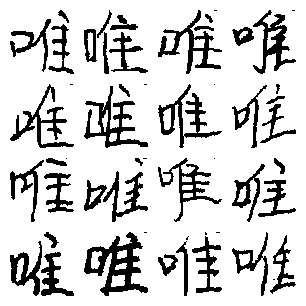 唯唯唯唯
唯唯唯唯
唯唯唯唯
唯唯唯唯